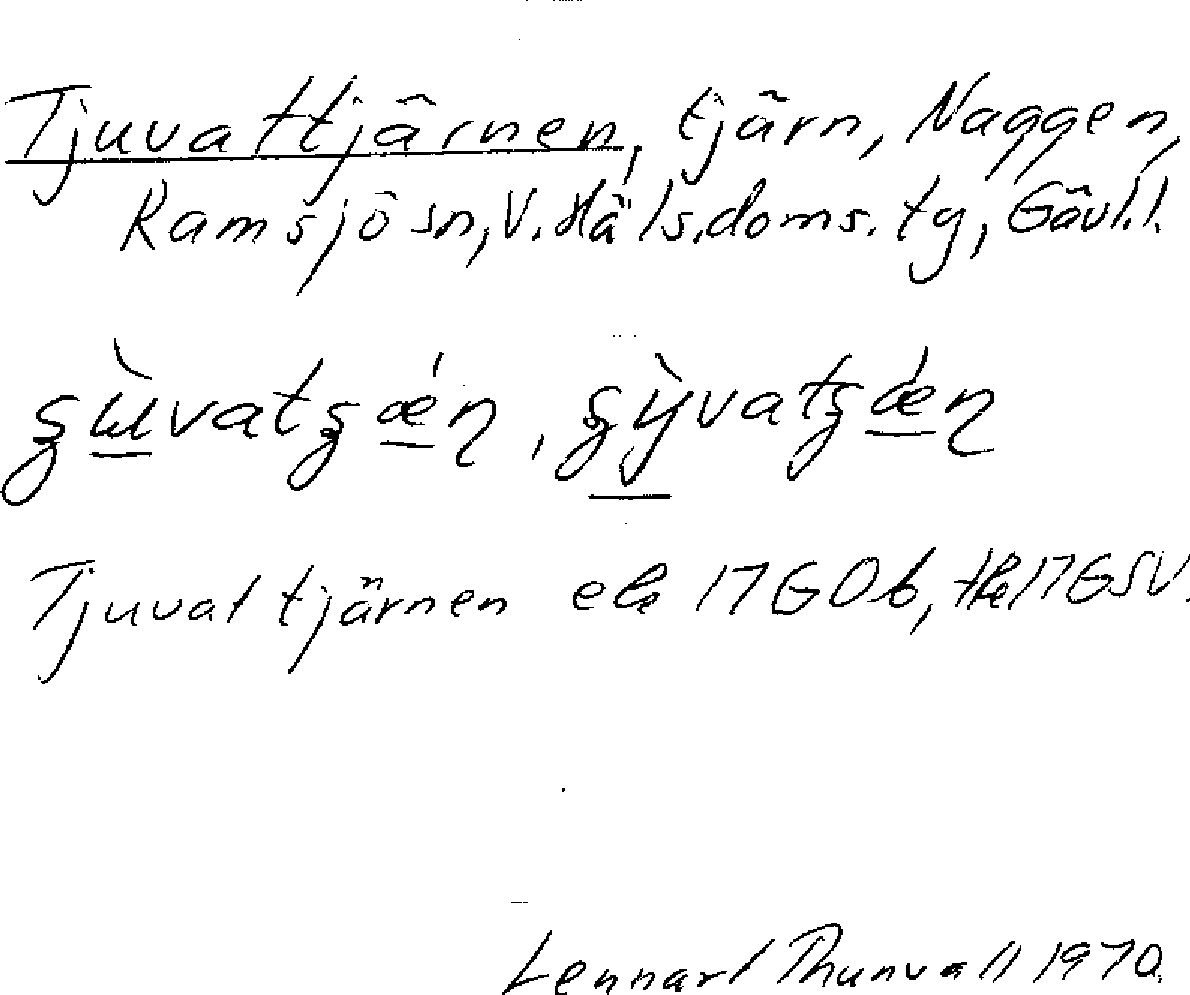 Tjuvattjärnen, tjärn, Naggen,
Ramsjö sn, V. Häls. doms. tg, Gävl. l.
Tjuvattjärnen ek 17G0b, 17GSV.
Lennart Thunvall 1970.